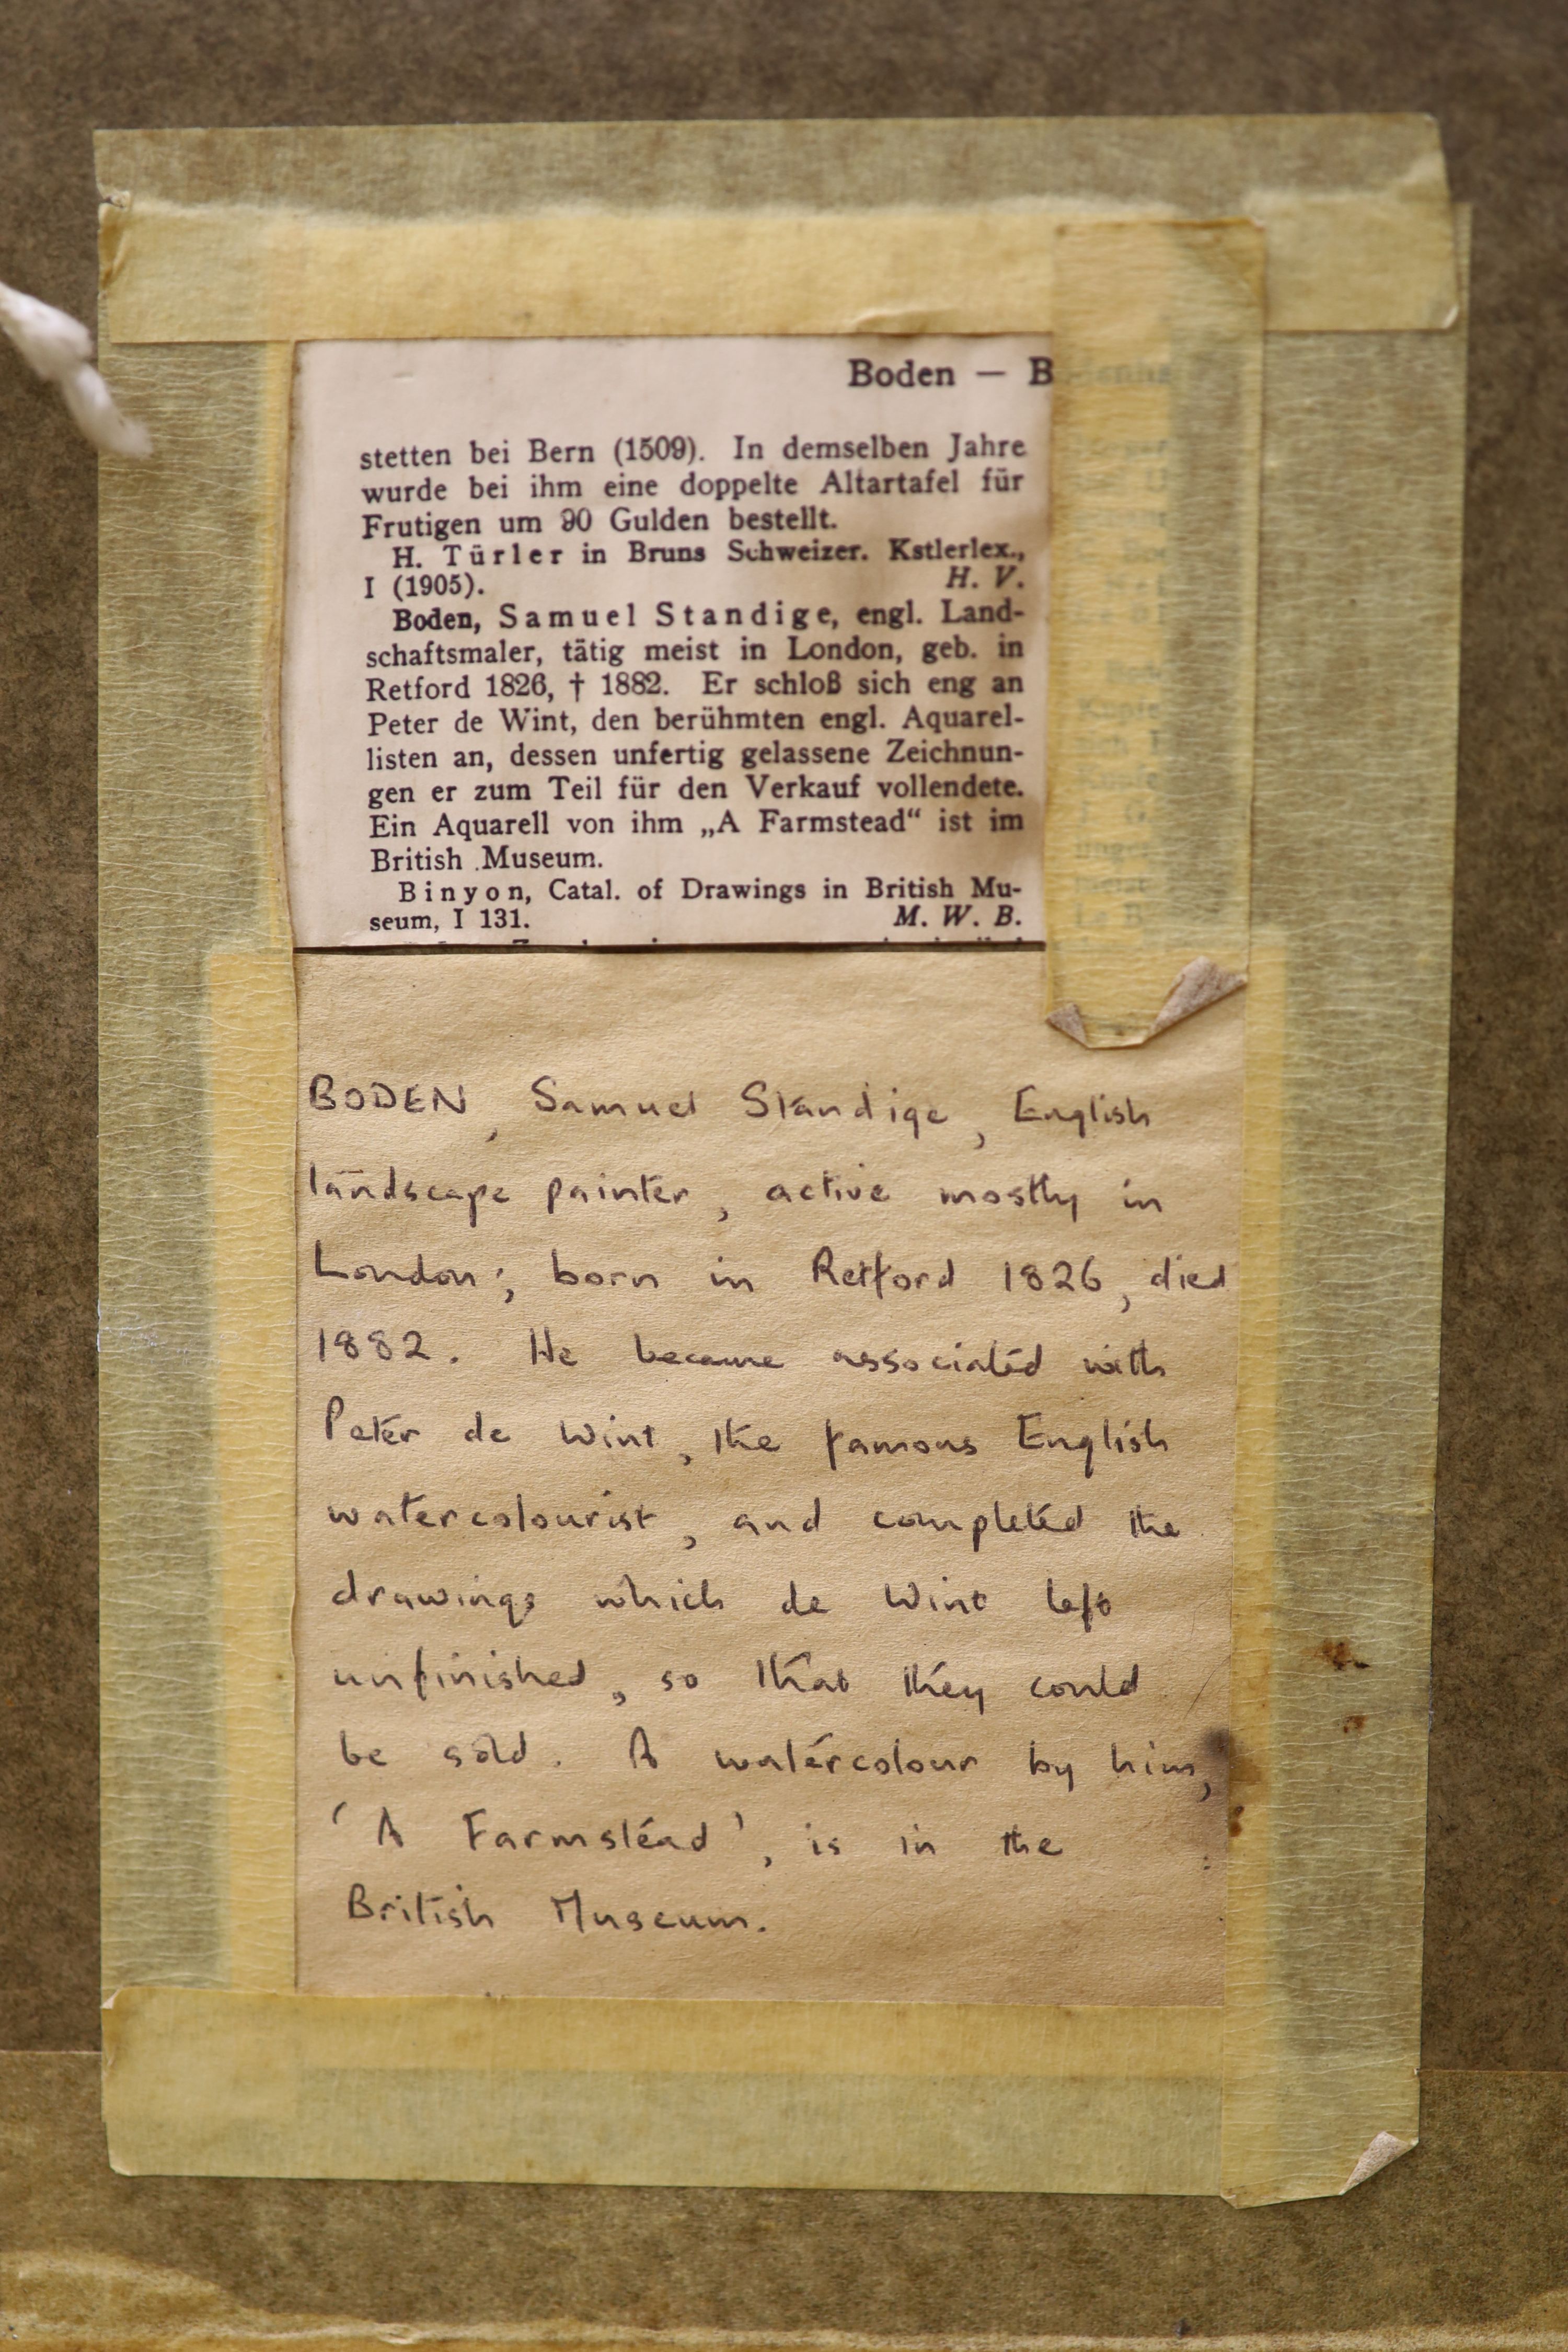 Boden — B
stetten bei Bern (1509). In demselben Jahre
wurde bei ihm eine doppelte Altartafel für
Frutigen um 90 Gulden bestellt.
H. Türler in Bruns Schweizer. Kstlerlex.,
I (1905). H. V.
Boden, Samuel Standige, engl. Land-
schaftsmaler, tätig meist in London, geb. in
Retford 1826, † 1882. Er schloß sich eng an
Peter de Wint, den berühmten engl. Aquarel-
listen an, dessen unfertig gelassene Zeichnun-
gen er zum Teil für den Verkauf vollendete.
Ein Aquarell von ihm „A Farmstead“ ist im
British Museum.
Binyon, Catal. of Drawings in British Mu-
seum, I 131. M. W. B.
BODEN, Samuel Standige, English
landscape painter, active mostly in
London; born in Retford 1826, died
1882. He became associated with
Peter de Wint, the famous English
watercolourist, and completed the
drawings which de Wint left
unfinished, so that they could
be sold. A watercolour by him,
'A Farmstead', is in the
British Museum.